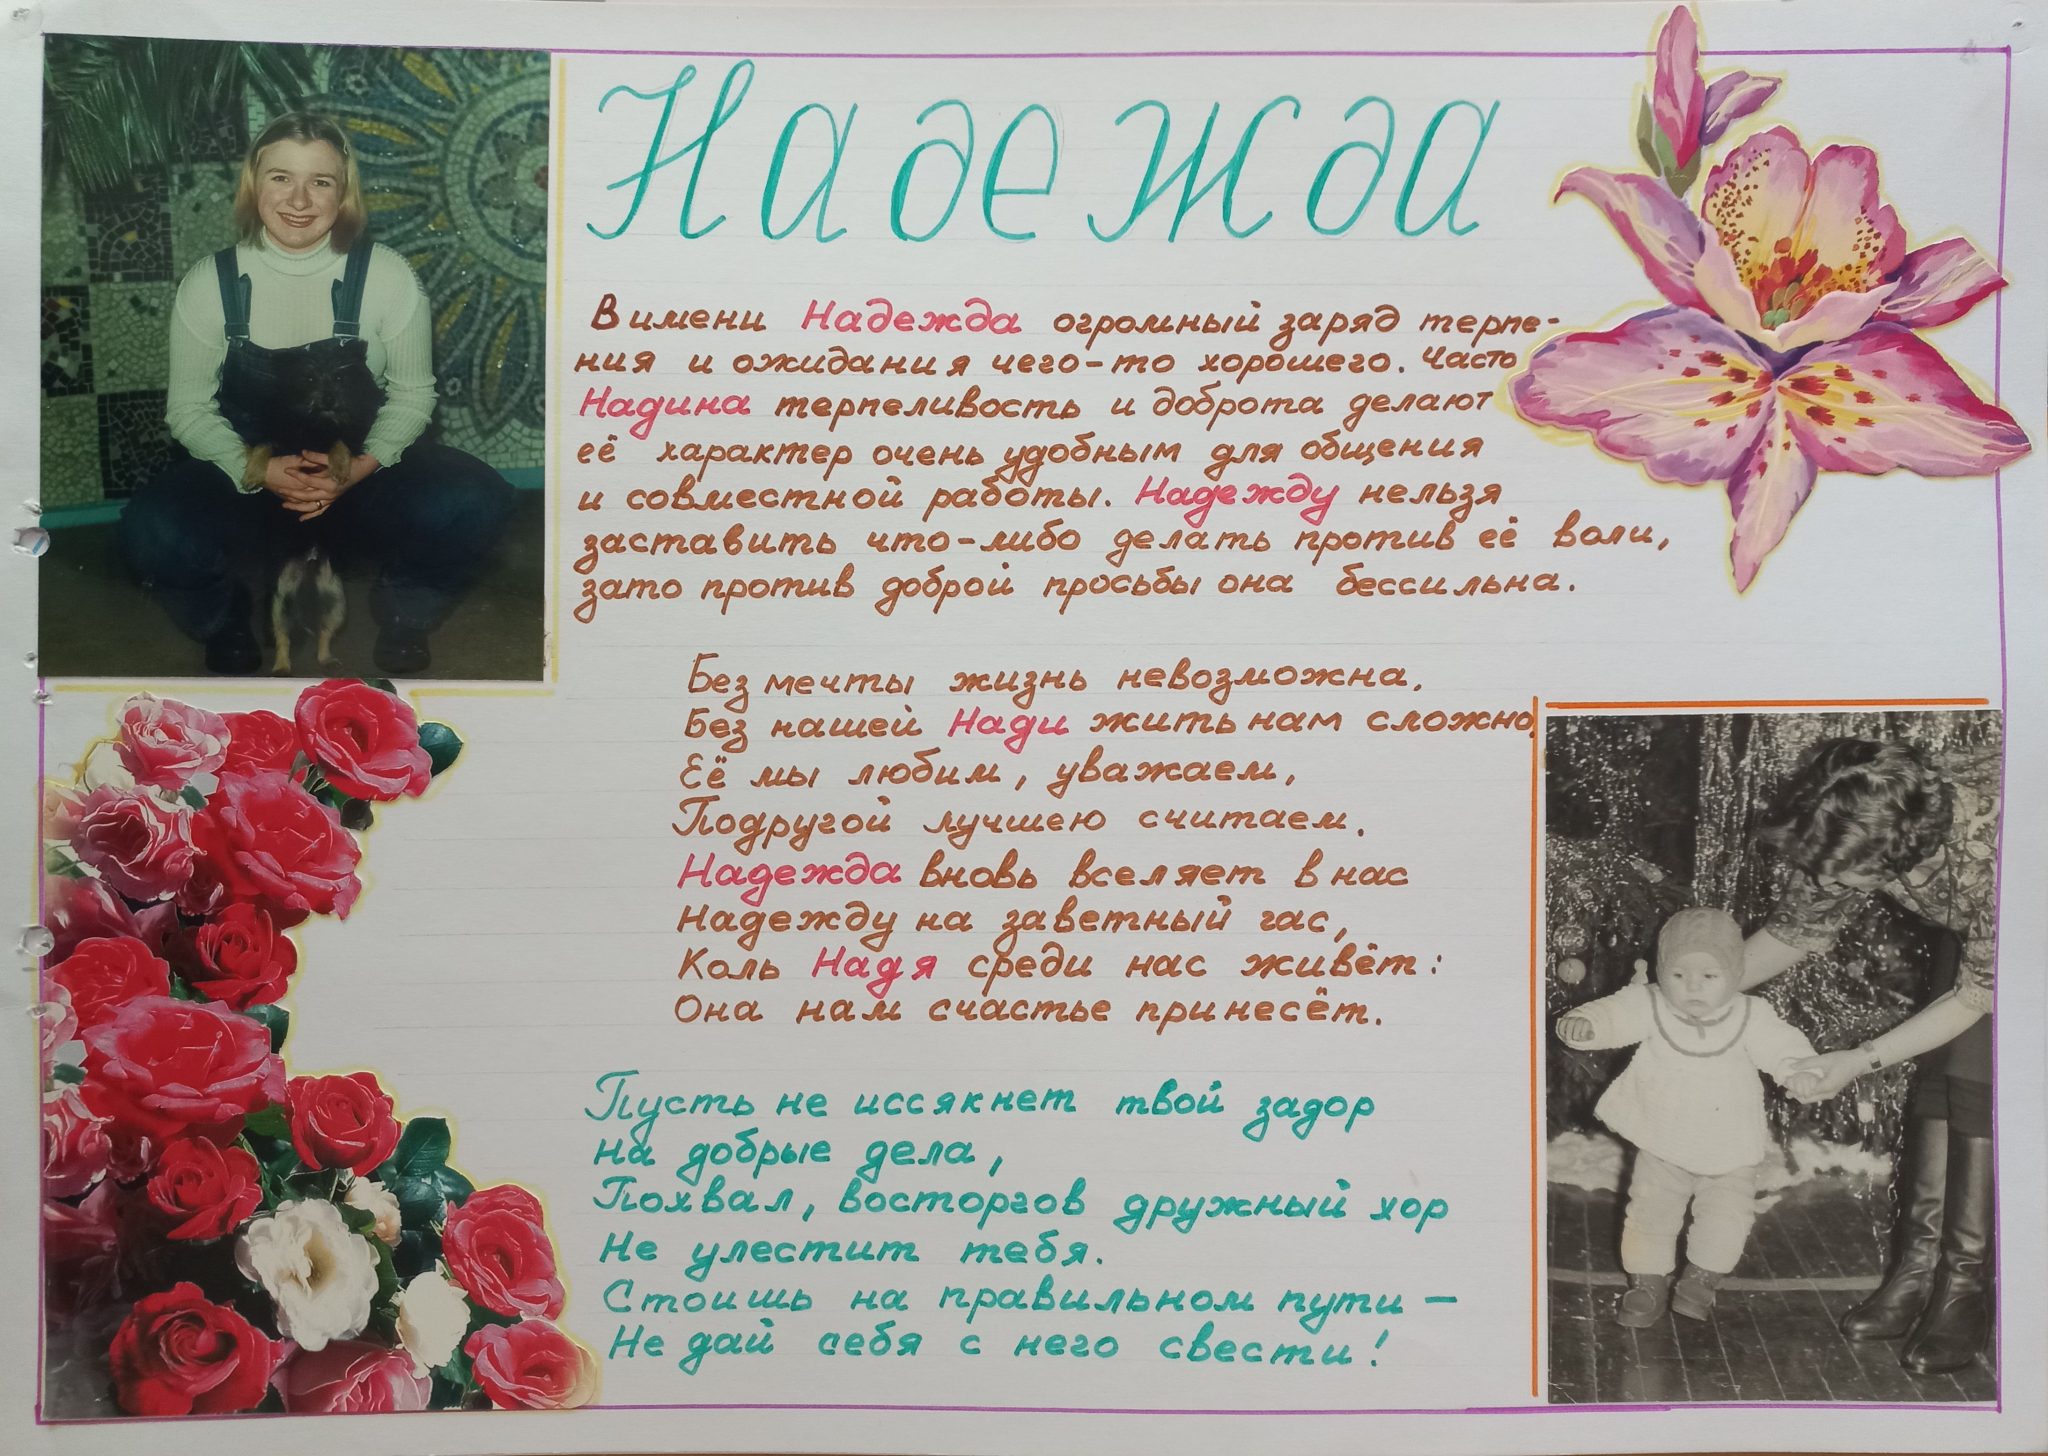 Надежда
В имени Надежда огромный заряд терпе-
ния и ожидания чего-то хорошего. Часто
Надина терпеливость и доброта делают
её характер очень удобным для общения
и совместной работы. Надежду нельзя
заставить что-либо делать против её воли,
зато против доброй просьбы она бессильна.
Без мечты жизнь невозможна.
Без нашей Нади жить нам сложно.
Её мы любим, уважаем,
Подругой лучшею считаем.
Надежда вновь вселяет в нас
Надежду на заветный час,
Коль Надя среди нас живёт:
Она нам счастье принесёт.
Пусть не иссякнет твой задор
на добрые дела,
Похвал, восторгов дружный хор
Не улестит тебя.
Стоишь на правильном пути –
Не дай себя с него свести!